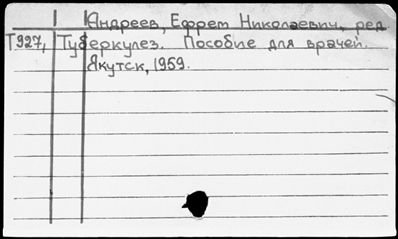 Андреев, Ефрем Николаевич, ред
Т927, Туберкулез. Пособие для врачей.
Якутск, 1959.